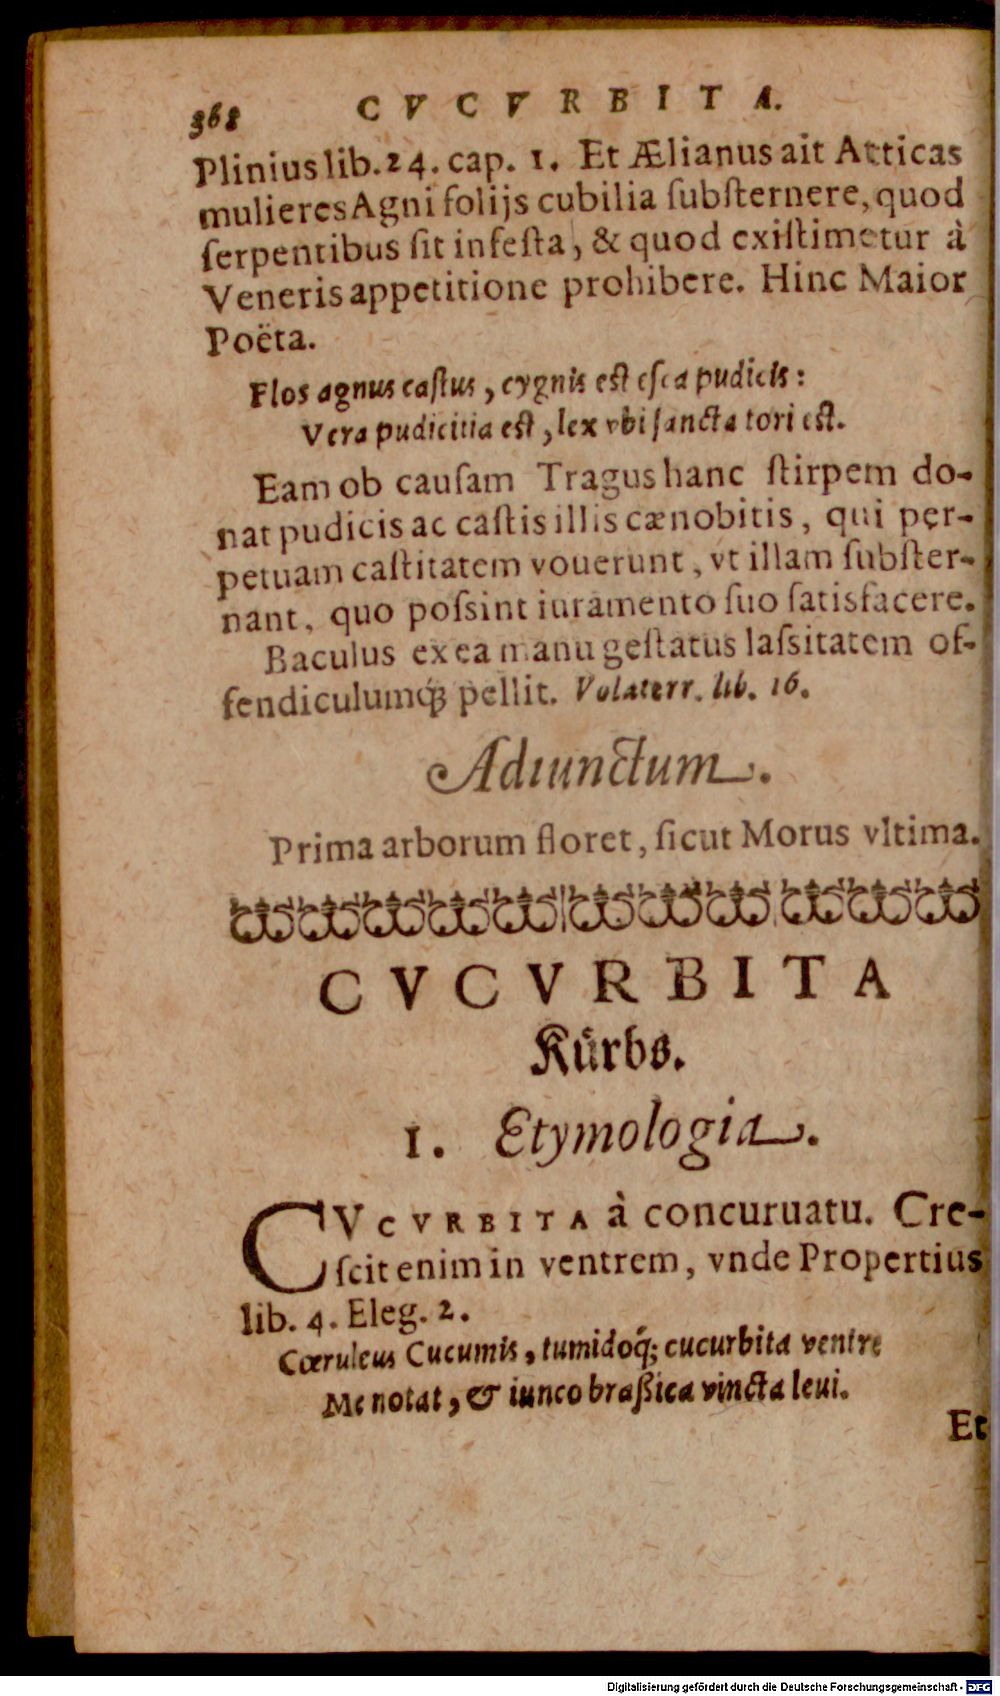 368 CVCVRBITA.
Plinius lib. 24. cap. 1. Et Ælianus ait Atticas
mulieres Agni folijs cubilia ſubſternere, quod
ſerpentibus ſit infeſta, & quod exiſtimetur à
Veneris appetitione prohibere. Hinc Maior
Poëta.
Flos agnus caſtus, cygnis eſt eſca pudicis:
Vera pudicitia eſt, lex vbi ſancta tori eſt.
Eam ob cauſam Tragus hanc ſtirpem do-
nat pudicis ac caſtis illis cænobitis, qui per-
petuam caſtitatem vouerunt, vt illam ſubſter-
nant, quo poſsint iuramento ſuo ſatisfacere.
Baculus ex ea manu geſtatus laſsitatem of-
fendiculumq́; pellit. Volaterr. lib. 16.
Adiunctum.
Prima arborum floret, ſicut Morus vltima.
CVCVRBITA
Kürbs.
1. Etymologia.
CVCVRBITA à concuruatu. Cre-
ſcit enim in ventrem, vnde Propertius
lib. 4. Eleg. 2.
Cœruleus Cucumis, tumidoq́; cucurbita ventre
Me notat, & iunco braßica vincta leui.
Et
Digitalisierung gefördert durch die Deutsche Forschungsgemeinschaft - DFG